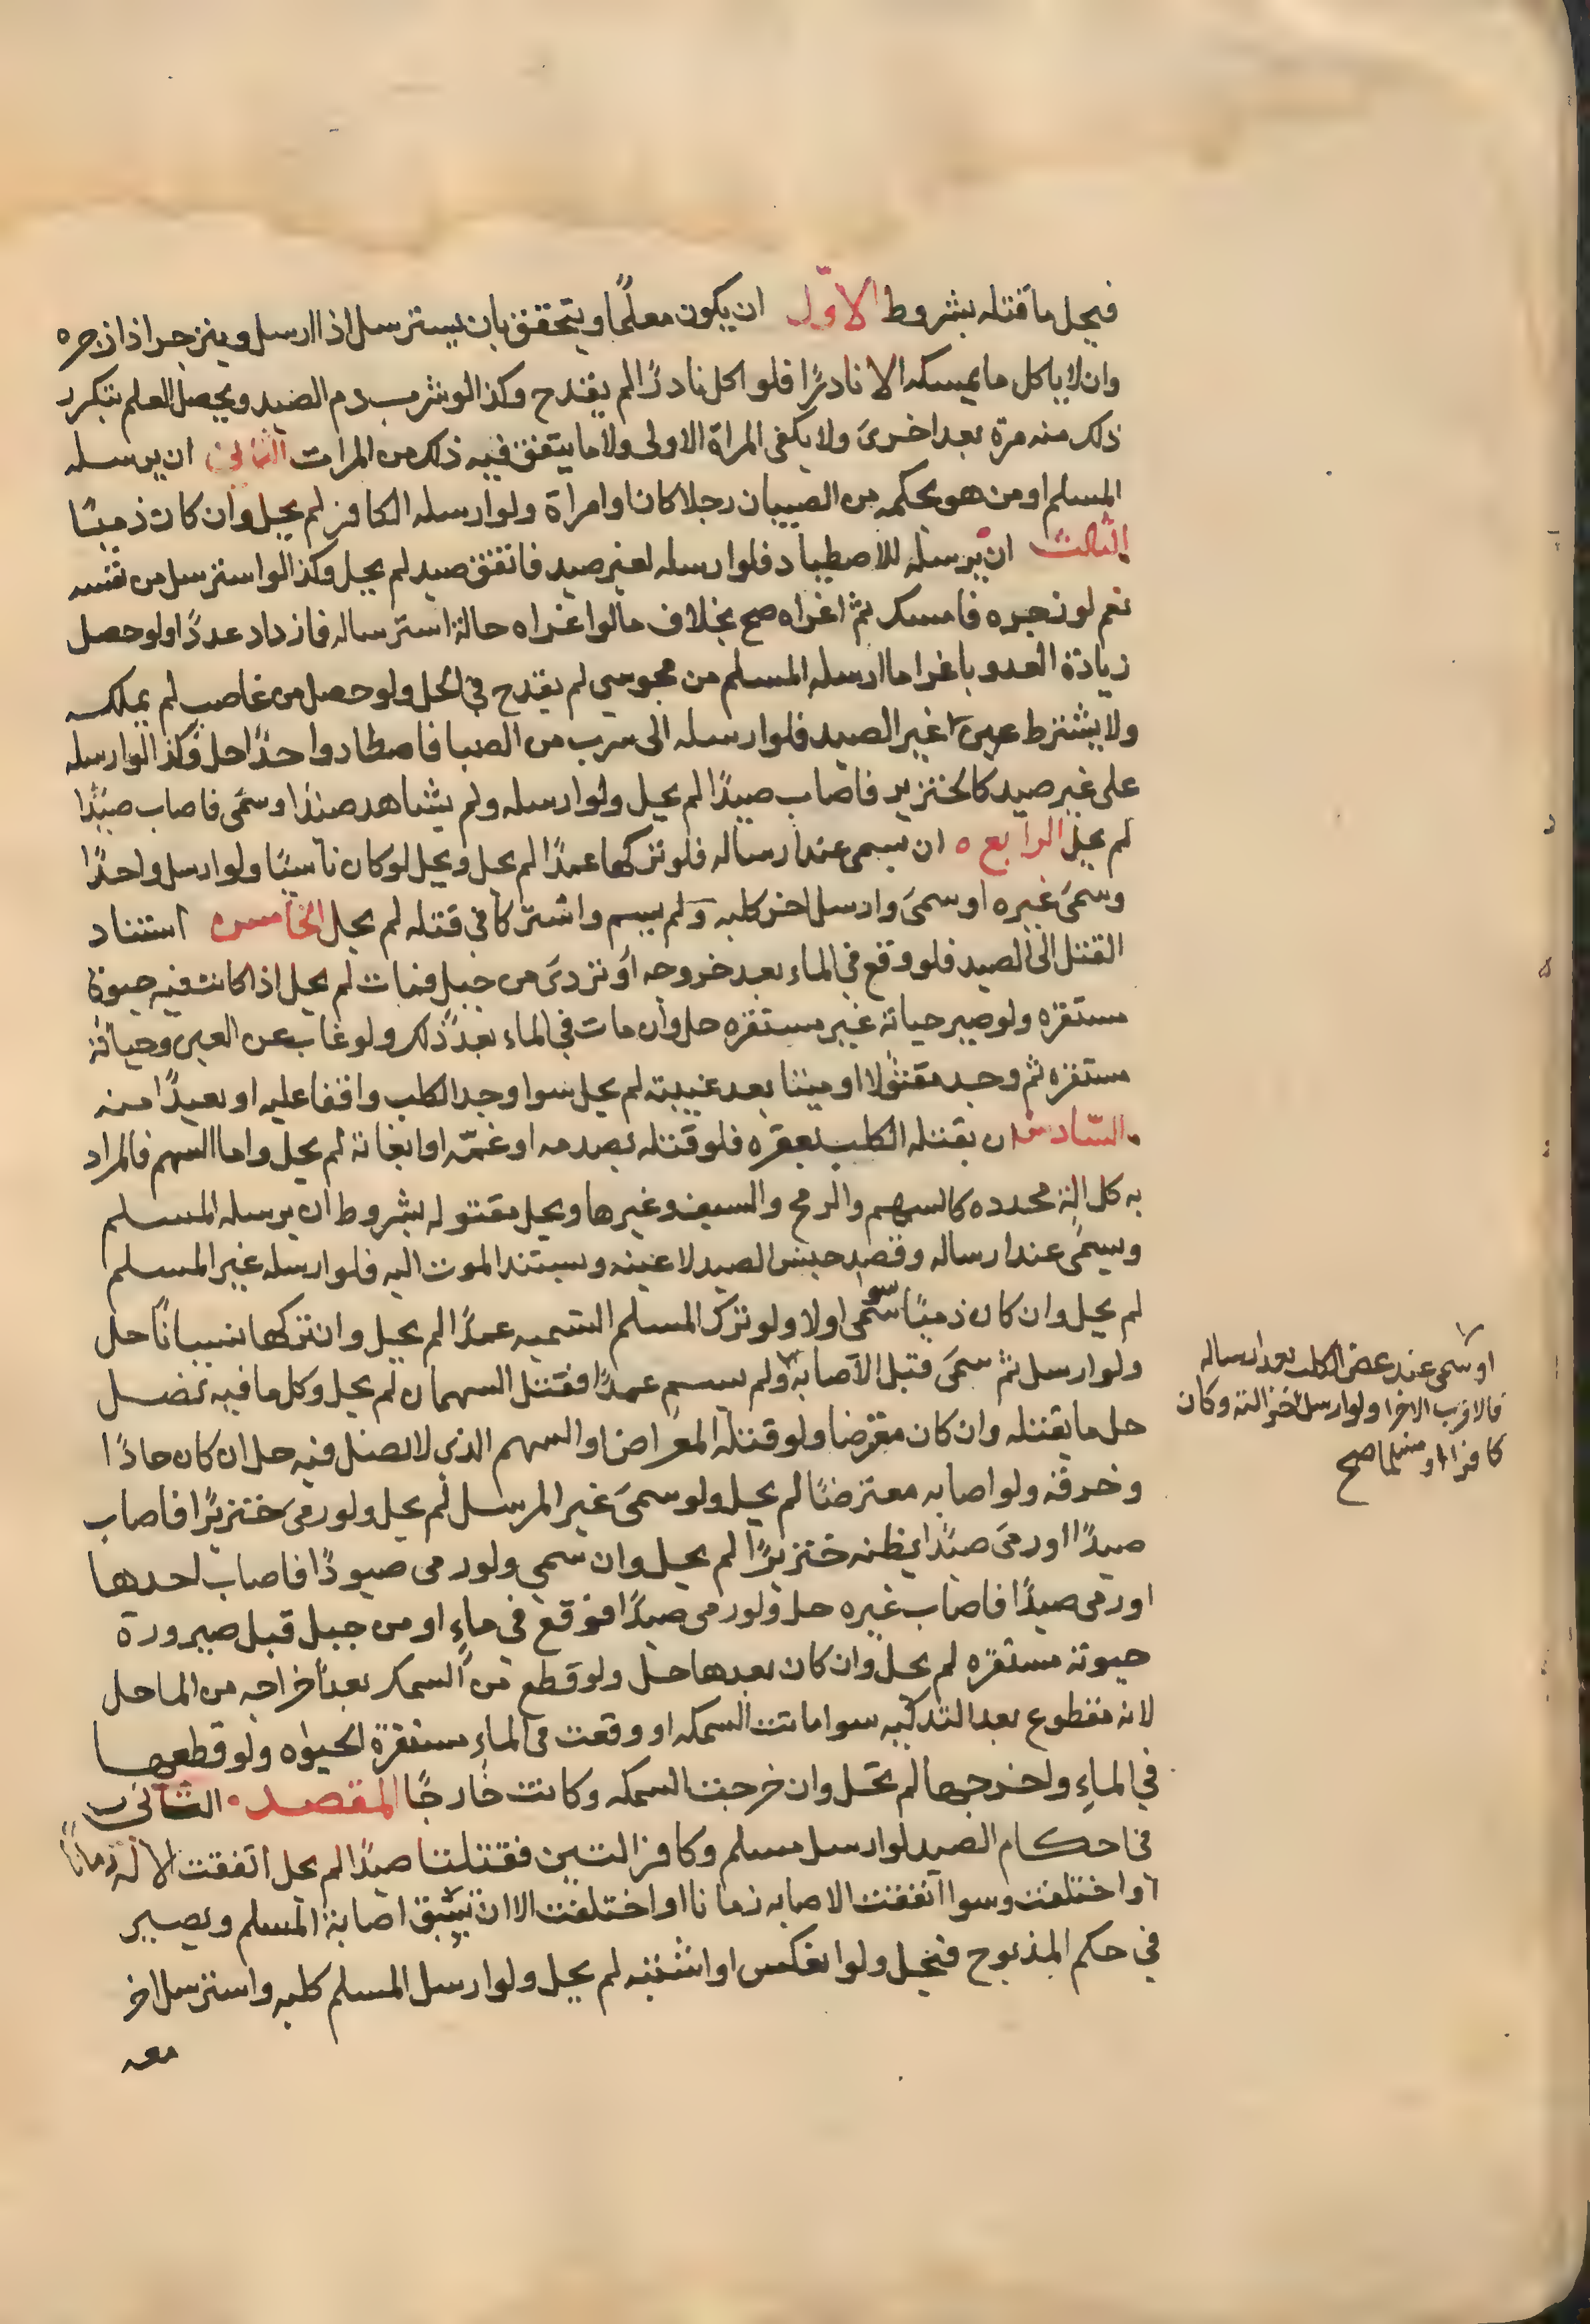 فيحل ما قتله بشروط الاوّل ان يكون معلمًا ويتحقق بان يسترسل اذا ارسل وينزجر اذا زجره
وان لا ياكل ما يمسكه الا نادرًا فلو اكل نادرًا لم يقدح وكذا لو شرب دم الصيد ويحصل العلم بتكرر
ذلك منه مرة بعد اخرى ولا يكفى المراة الاولى ولا ما يتفق فيه ذلك من المرات الثانى ان يرسله
المسلم او من هو بحكمه من الصبيان رجلا كان او امراة ولو ارسله الكافر لم يحل وان كان ذميًا
الثالث ان يرسله للاصطياد فلو ارسله لغير صيد فاتفق صيد لم يحل وكذا لو استرسل من نفسه
نعم لو زجره فامسك ثم اغراه صح بخلاف ما لو اغراه حالة استرساله فازداد عدوًا ولو حصل
زيادة العدو باغرا ما ارسله المسلم من مجوسي لم يقدح في الحل ولو حصل من غاصب لم يملك
ولا يشترط عين الصيد فلو ارسله الى سرب من الصبا فاصطاد واحدًا حل وكذا لو ارسله
على غير صيد كالخنزير فاصاب صيدًا لم يحل ولو ارسله ولم يشاهد صيدًا وسمى فاصاب صيدًا
لم يحل الرابع ه ان يسمى عند ارساله فلو تركها عمدًا لم يحل ويحل لو كان ناسيًا ولو ارسل واحدًا
وسمى غيره او سمى وارسل اخر كلبه ولم يسم واشتركا في قتله لم يحل الخامس استناد
القتل الى الصيد فلو وقع في الماء بعد خروجه او تردى من جبل فمات لم يحل اذا كانت فيه حيوة
مستقره ولو صير حياته غير مستقره حل وان مات في الماء بعد ذلك ولو غاب عن العين وحياته
مستقره ثم وجد مقتولا او ميتا بعد غيبته لم يحل سوا وجد الكلب واقفا عليه او بعيدًا منه
السّادس ان يقتله الكلب بعقره فلو قتله بصدمه او غمّه او اتعابه لم يحل واما السهم فالمراد
به كل الة محدده كالسهم والرمح والسيف وغيرها ويحل مقتوله بشروط ان يرسله المسلم
ويسمى عند ارساله وقصد جنس الصيد لا عينه ويستند الموت اليه فلو ارسله غير المسلم
لم يحل وان كان ذميًا سوا سمى او لا ولو ترك المسلم التسميه عمدًا لم يحل وان تركها نسيانًا حل
ولو ارسل ثم سمى قبل الاصابه ولم يسم عمدًا فقتل السهمان لم يحل وكل ما فيه نصل
حل ما يقتله وان كان معترضا ولو قتله المعراض او السهم الذى لا نصل فيه حل ان كان حادًا
وخرقه ولو اصابه معترضًا لم يحل ولو سمى غير المرسل لم يحل ولو رمى خنزيرًا فاصاب
صيدًا او رمى صيدًا يظنه خنزيرًا لم يحل وان سمى ولو رمى صيودًا فاصاب احدها
او رمى صيدًا فاصاب غيره حل ولو رمى صيدًا فوقع في ماءٍ او من جبل قبل صيرورة
حيوته مستقره لم يحل وان كان بعدها حل ولو قطع من السمك بعد اخراجه من الما حل
لانه مقطوع بعد التذكيه سوا ماتت السمكه او وقعت في الماءِ مستقرة الحيوٰه ولو قطعها
في الماءِ واخرجها لم تحل وان خرجت السمكه وكانت خارجًا المقصد الثانى
في احكام الصيد لو ارسل مسلم وكافر التين فقتلتا صيدًا لم يحل اتفقت الالة زمانًا
او اختلفت وسوا اتفقت الاصابه زمانا او اختلفت الا ان تسبق اصابة المسلم ويصير
في حكم المذبوح فيحل ولو انعكس او اشتبه لم يحل ولو ارسل المسلم كلبه واسترسل اخر
معه
او سمى عند عض الكلب بعد ارساله
فالاقرب الاخرا ولو ارسل اخر الته وكان
كافرا او مسلما صح